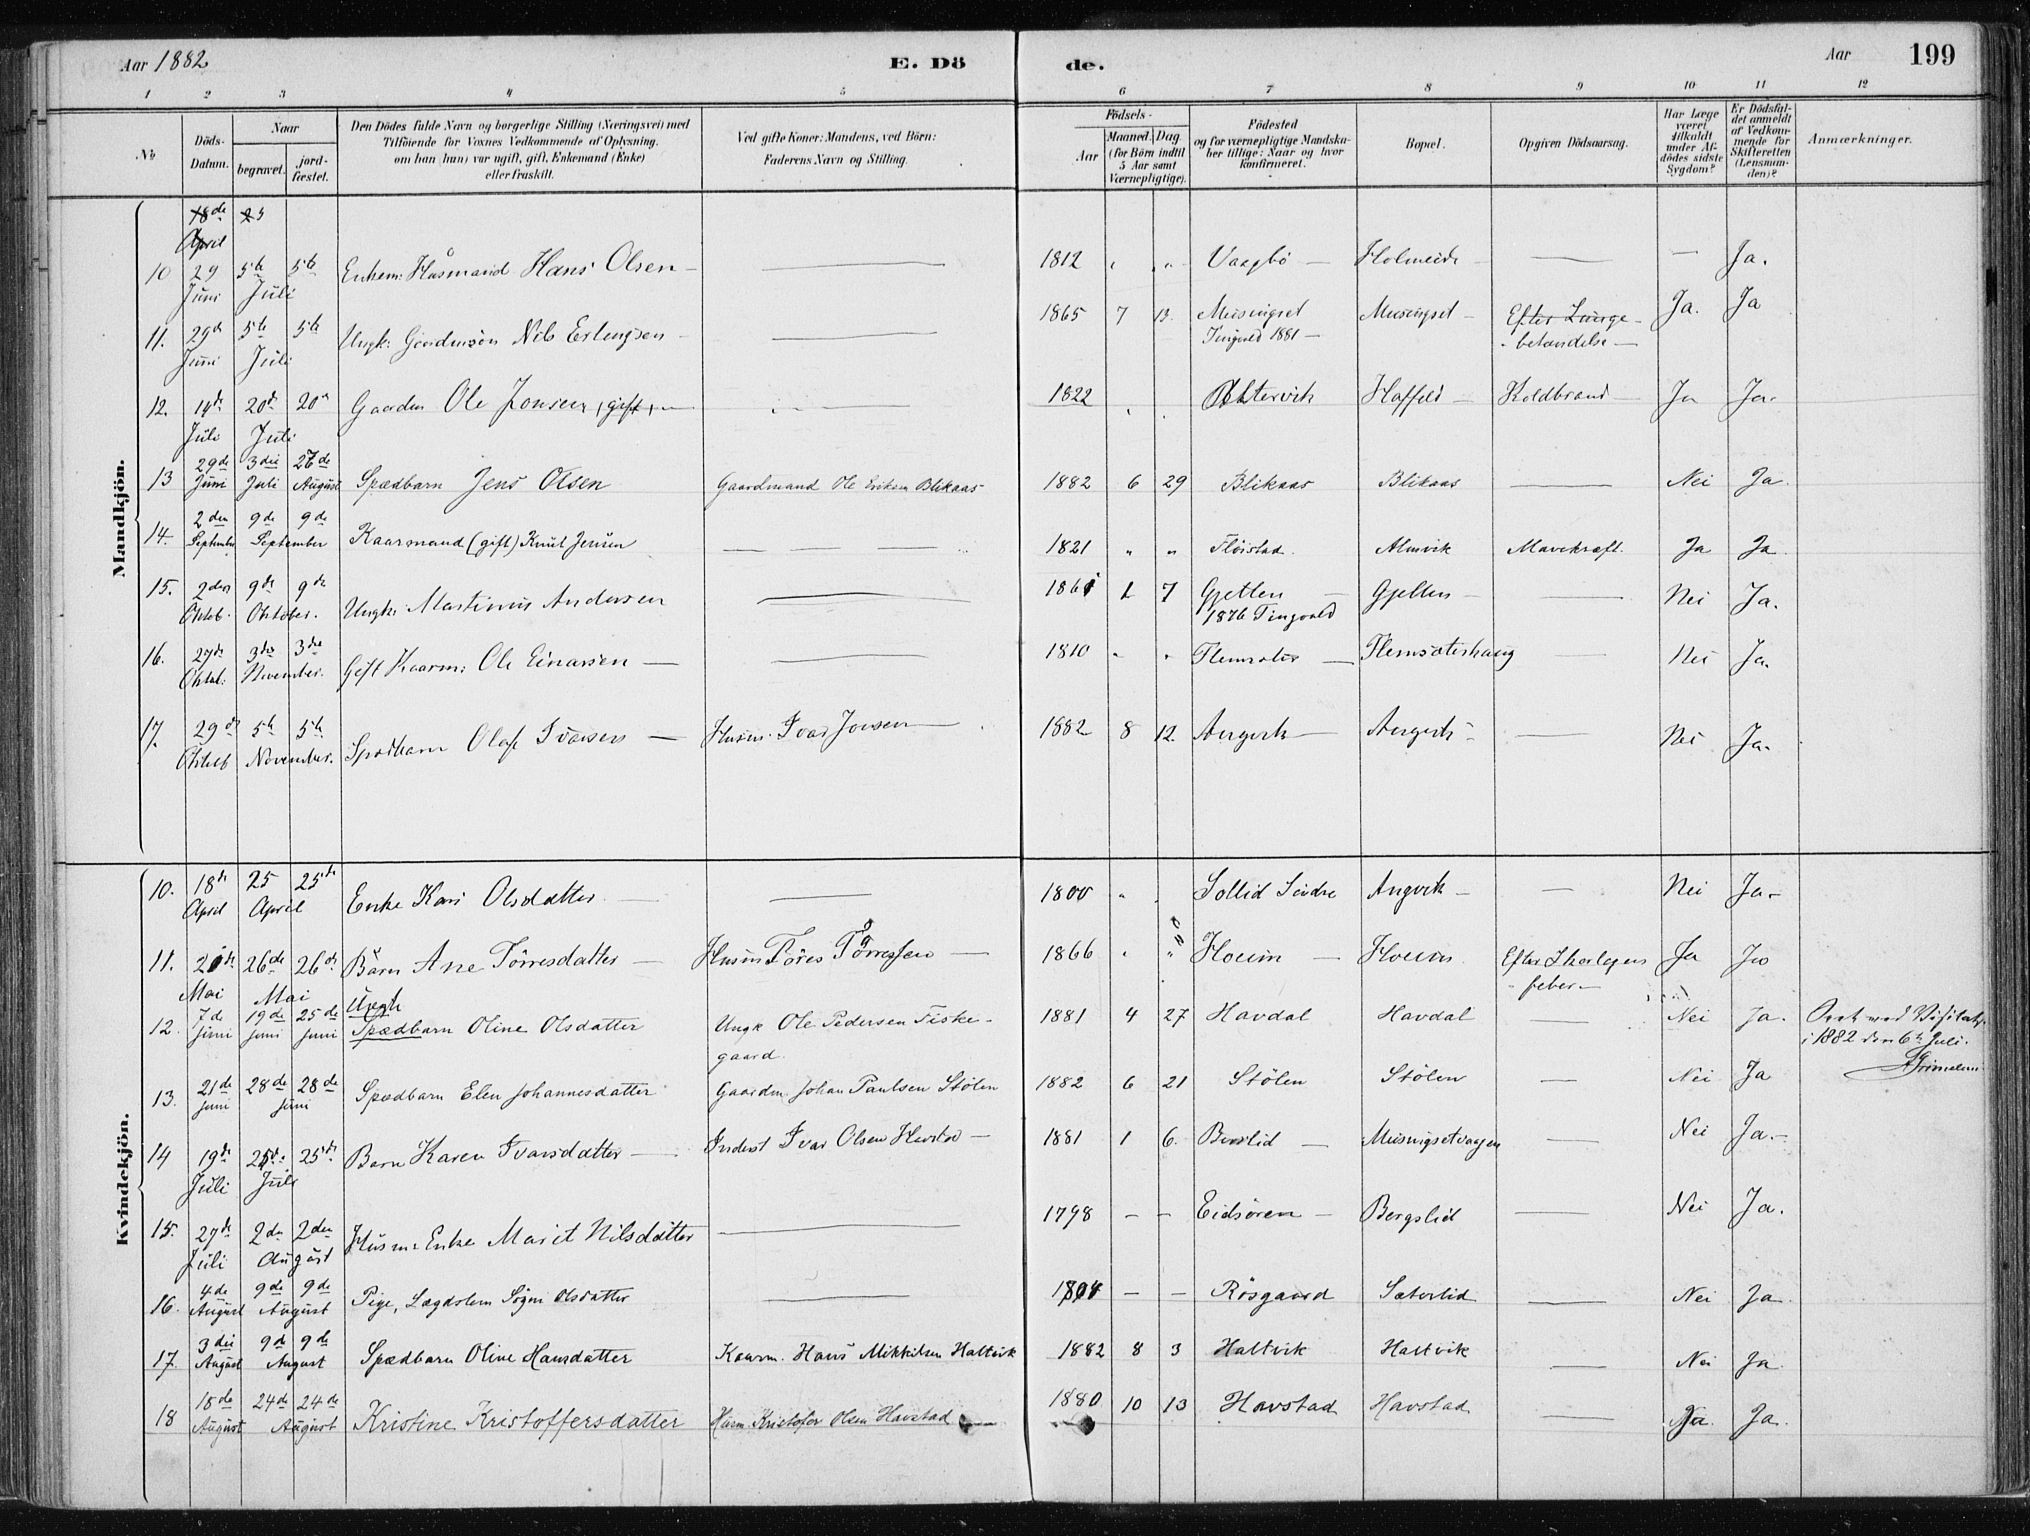 Aar 1882 E. Dö de. Aar 199
1 2 3 4 5 6 7 8 9 10 11 12
No
Döds-Datum.
Naar
begravet.
jord-fæstet.
Den Dödes fulde Navn og borgerlige Stilling (Næringsvei) med
Tilföiende for Voxnes Vedkommende af Oplysning,
om han (hun) var ugift, gift, Enkemand (Enke)
eller fraskilt.
Ved gifte Koner: Mandens, ved Börn:
Faderens Navn og Stilling.
Födsels-
Aar
Maaned. Dag.
(for Börn indtil
5 Aar samt
Værnepligtige).
Födested
og for værnepligtige Mandska-
ber tillige: Naar og hvor
konfirmeret.
Bopæl.
Opgiven Dödsaarsag.
Har Læge
været
tilkaldt
under Af-
dödes sidste
Sygdom?
Er Dödsfal-
det anmeldt
af Vedkom-
mende for
Skifteretten
(Lensman-
den)?
Anmærkninger.
Mandkjön.
18de April
10 29 Juni 5te 5te Juli Enkem: Husmand Hans Olsen — 1812 " " Vaagbö — Holmeide — — — Ja.
11. 29d Juni 5te 5te Juli Ungk: Gaardmsön Nils Erlengsen — 1865 7 13. Meisingset Tingvold 1881 — Meisingset — Efter Lunge-betændelse — Ja. Ja
12. 14de Juli 20d 20d Juli Gaardm Ole Jonsen, (gift) — 1822 Haffeld — Koldbrand — Ja Ja.
13 29de Juni 3die Juli 27de August Spædbarn Jens Olsen Gaardmand Ole Eriksen Blikaas 1882 6 29 Blikaas Blikaas — Nei Ja.
14. 2den September 9de 9de September Kaarmand (gift) Knut Jensen — 1821 " " Flöistad. Almvik Mavekræft. Ja Ja
15. 2den Oktob. 9de 9de Oktober. Ungk: Martinus Andersen — 1861 1 7 Gjetten — 1876 Tingvold Gjetten — — Nei Ja.
16. 27de Oktob: 3die 3die November. Gift Kaarm: Ole Einarsen — — 1810 " " Flemsæter — Flemsæterhaug — Nei Ja.
17. 29de Oktob 5te 5te November. Spædbarn Olaf Ivarsen — Husm. Ivar Jonsen — 1882 8 12. Angvik — Angvik — — Nei Ja.
Kvindekjön.
10. 18de April 25 25de April Enke Kari Olsdatter. — — 1800 " Sollid Söndre Angvik — — Nei Ja.
11. 20de Mai 26de 26de Mai Barn Ane Törresdatter — Husm Töres Törressen — 1866 " " Hoem — Hoem. Efter Skarlagensfeber — Ja Ja
12. 7de Juni 19de Juni 25de Juni Uægte Spædbarn Oline Olsdatter Ungk Ole Pedersen Fiske-gaard. 1881 4 27 Havdal Havdal — Nei Ja. med Visitats i 1882 den 6te Juli.
13. 21de Juni 28de 28de Juni Spædbarn Elen Johannesdatter Gaardm. Johan Paulsen Stölen 1882 6 21 Stölen Stölen — Nei Ja
14 19de Juli 25de 25de Juli Barn Karen Ivarsdatter — Inderst Ivar Olsen — 1881 1 6. — Meisingsetvaagen — Nei Ja.
15. 27de Juli 2den 2den August Husm: Enke Marit Nilsdatter — 1798 — — Eidsören — Bergslid — Nei Ja.
16. 4de August 9de 9de August Pige, Lægdslem Olsdatter — 1804 — — Rösgaard Sæterlid — Nei Ja.
17. 3die August 9de 9de August Spædbarn Oline Hansdatter Kaarm. Hans Mikkelsen Haltvik 1882 8 3 Haltvik Haltvik — Nei Ja.
18 18de August 24de 24de August Kristine Kristoffersdatter Husm. Kristofer Olsen Havstad — 1880 10 13 Havstad Havstad — Ja. Ja.